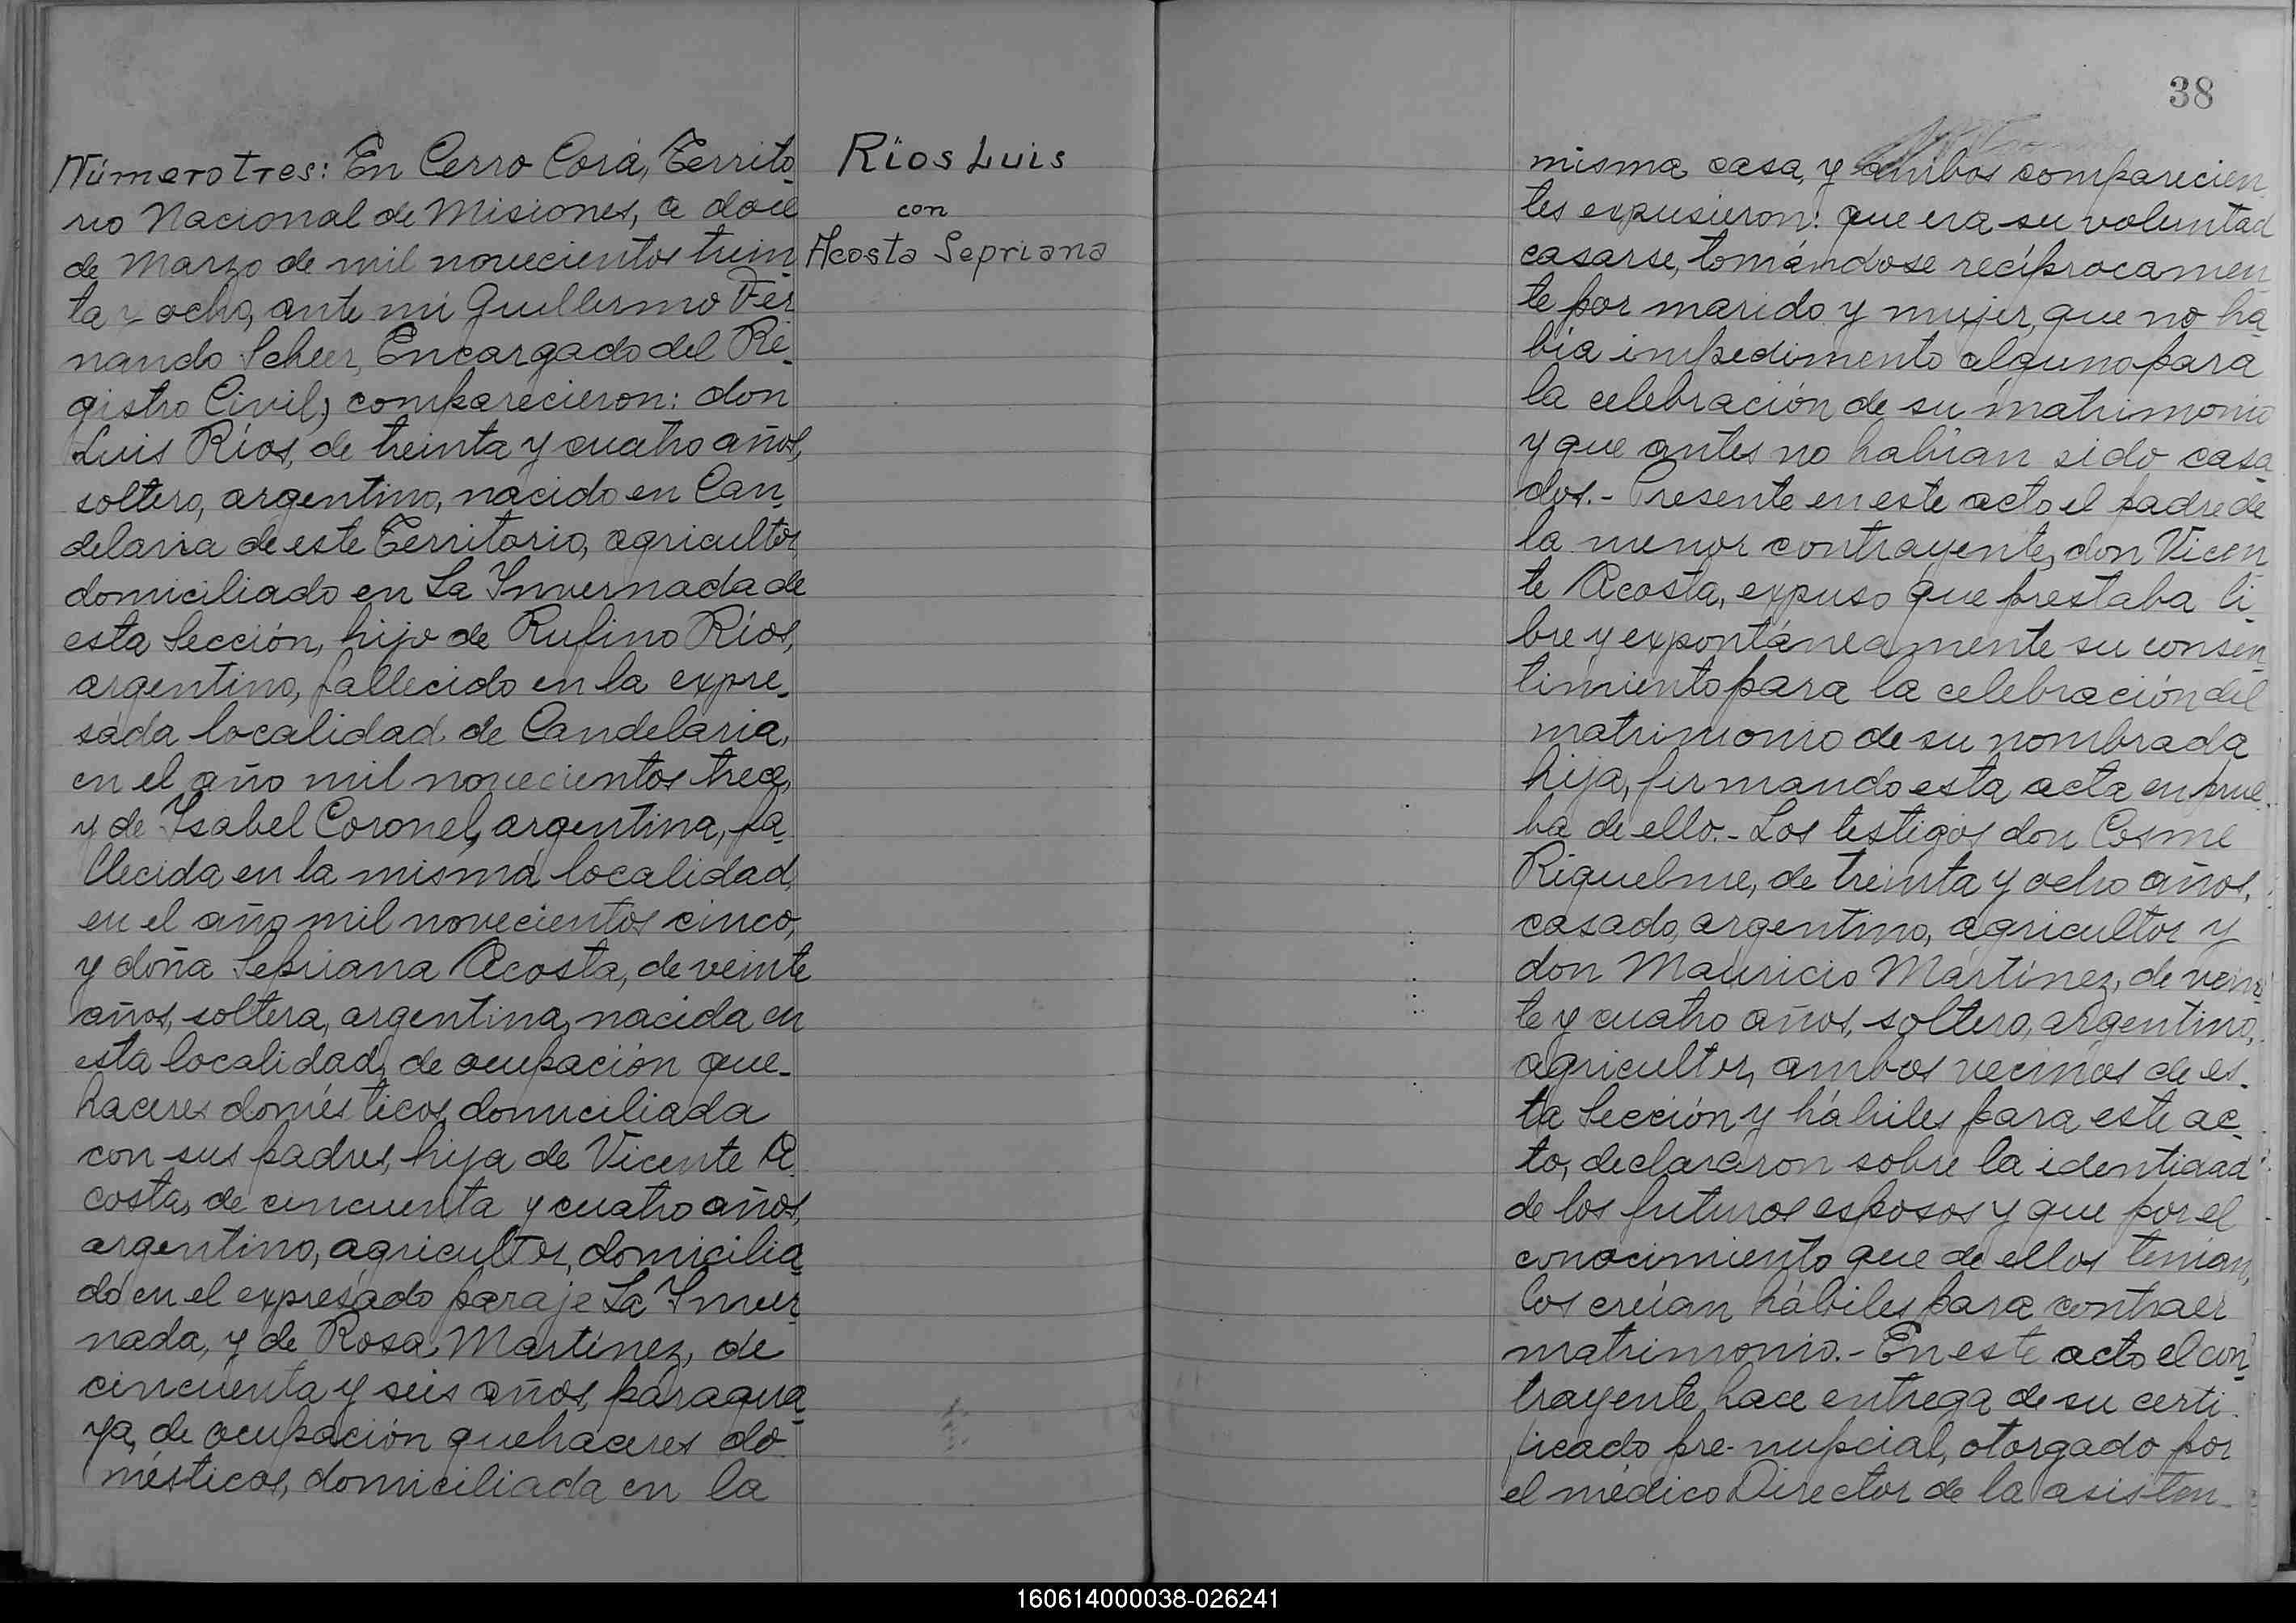 Número tres: En Cerro Corá, Territo-
rio Nacional de Misiones, a doce
de Marzo de mil novecientos trein-
ta y ocho, ante mi Guillermo Fer-
nando Scheer, Encargado del Re-
gistro Civil, comparecieron: don
Luis Ríos, de treinta y cuatro años,
soltero, argentino, nacido en Can-
delaria de este Territorio, agricultor
domiciliado en La Invernada de
esta Sección, hijo de Rufino Ríos,
argentino, fallecido en la expre-
sada localidad de Candelaria,
en el año mil novecientos trece,
y de Isabel Coronel, argentina, fa-
llecida en la misma localidad,
en el año mil novecientos cinco,
y doña Sepriana Acosta, de veinte
años, soltera, argentina, nacida en
esta localidad, de ocupación que-
haceres domésticos, domiciliada
con sus padres, hija de Vicente A-
costa, de cincuenta y cuatro años,
argentino, agricultor, domicilia-
do en el expresado paraje La Inver-
nada, y de Rosa Martínez, de
cincuenta y seis años, paragua-
ya, de ocupación quehaceres do-
mésticos, domiciliada en la
Ríos Luis
con
Acosta Sepriana
38
misma casa, y ambos comparecien-
tes expusieron: que era su voluntad
casarse, tomándose recíprocamen-
te por marido y mujer, que no ha-
bía impedimento alguno para
la celebración de su matrimonio
y que antes no habían sido casa-
dos.- Presente en este acto el padre de
la menor contrayente, don Vicen-
te Acosta, expuso que prestaba li-
bre y expontáneamente su consen-
timiento para la celebración del
matrimonio de su nombrada
hija, firmando esta acta en prue-
ba de ello.- Los testigos don Cosme
Riquelme, de treinta y ocho años,
casado, argentino, agricultor y
don Mauricio Martínez, de vein-
te y cuatro años, soltero, argentino,
agricultor, ambos vecinos de es-
ta Sección y hábiles para este ac-
to, declararon sobre la identidad
de los futuros esposos y que por el
conocimiento que de ellos tenían,
los creían hábiles para contraer
matrimonio.- En este acto el con-
trayente hace entrega de su certi-
ficado pre-nupcial, otorgado por
el médico Director de la asisten-
160614000038-026241